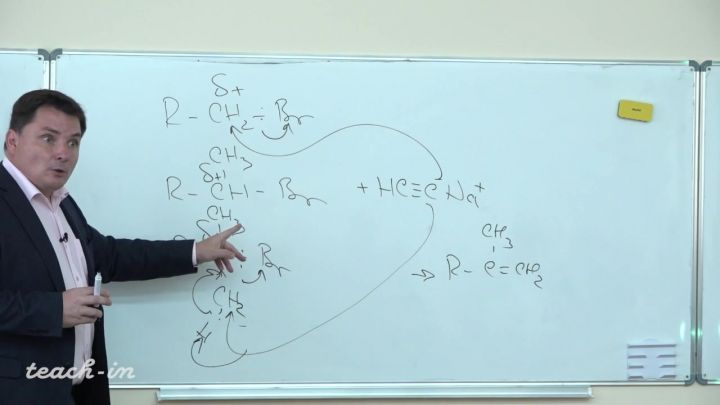 δ+
R - CH2 : Br
CH3
δ+
R - CH - Br + HC≡C Na+
CH3
δ+
: Br
CH3
→ R - C = CH2
CH2
H
teach-in